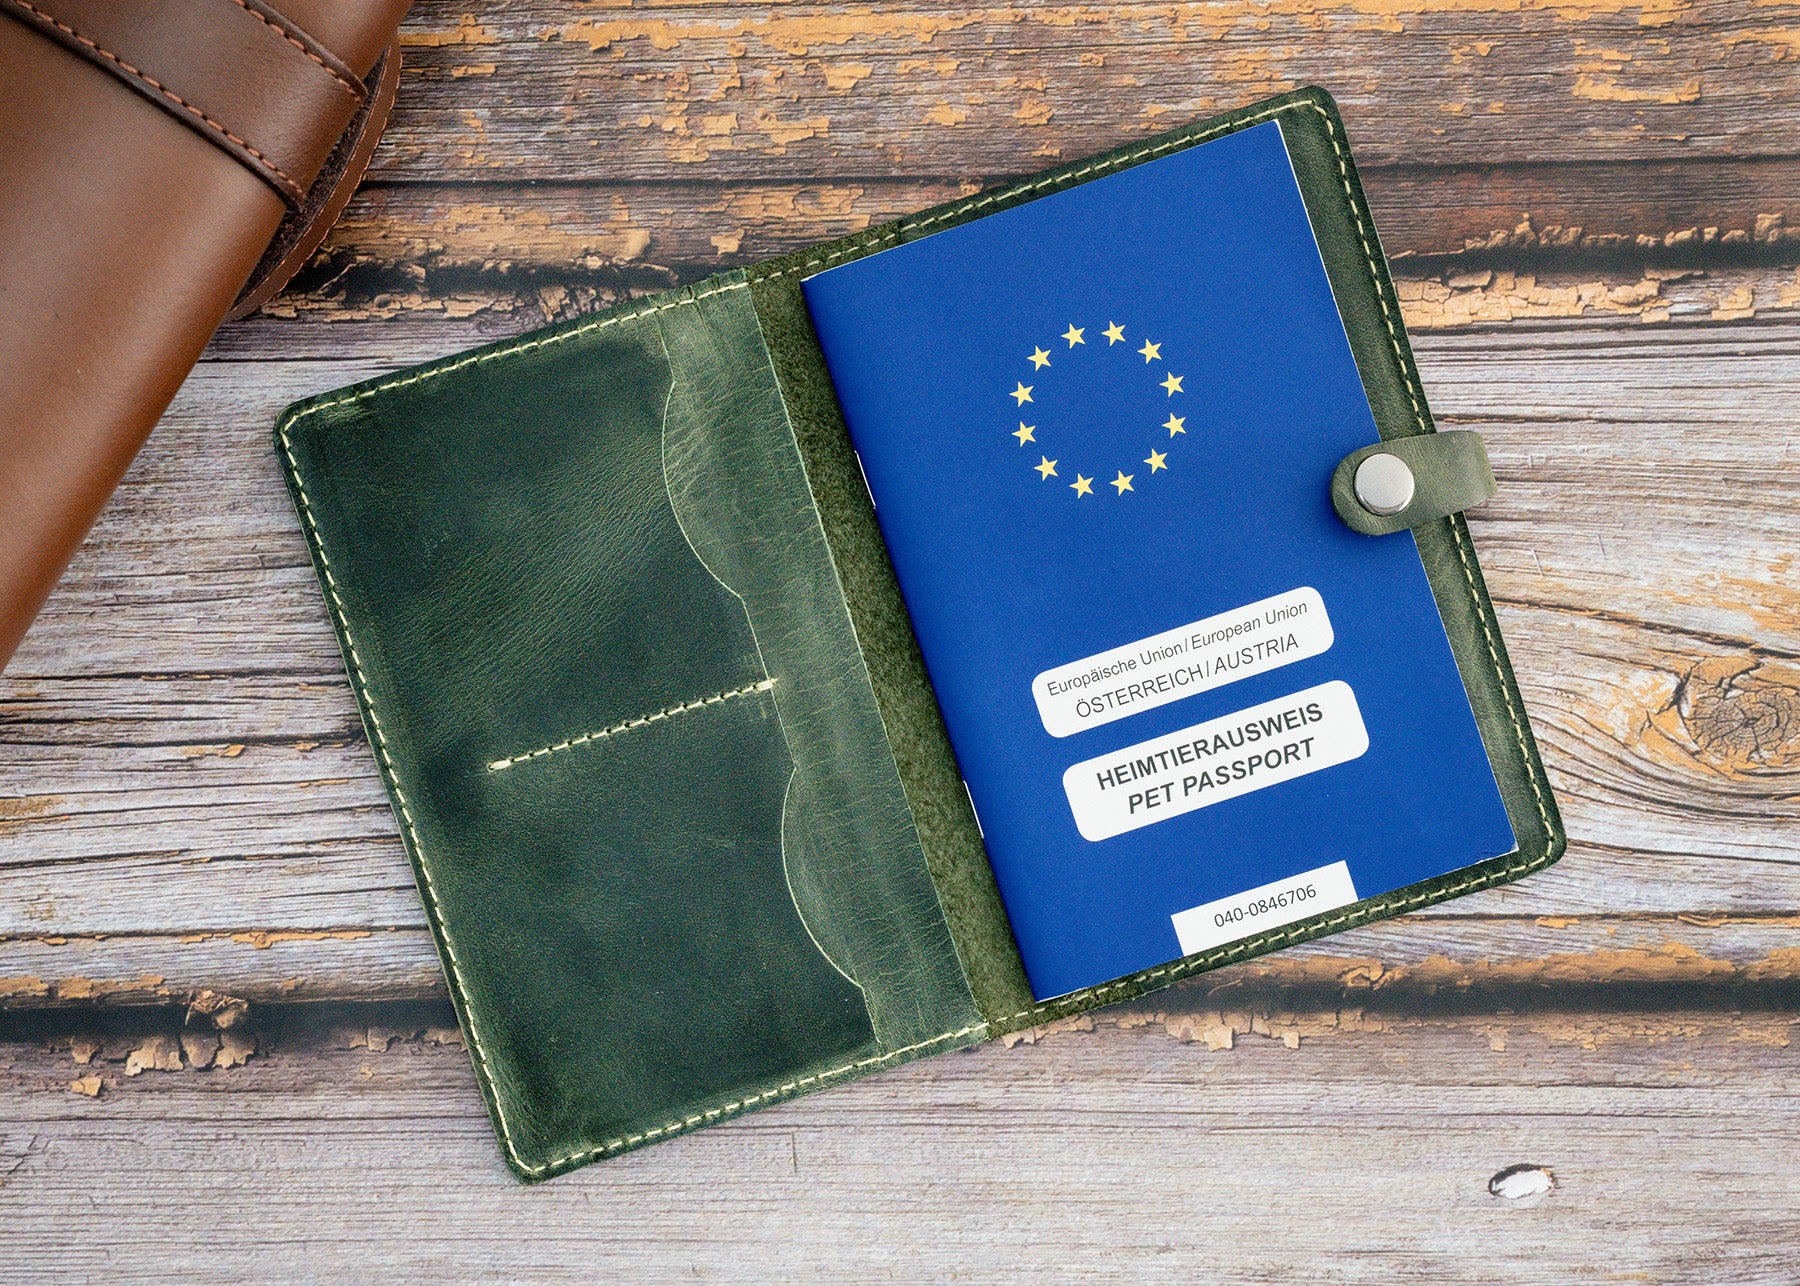 Europäische Union / European Union
ÖSTERREICH / AUSTRIA
HEIMTIERAUSWEIS
PET PASSPORT
040-0846706